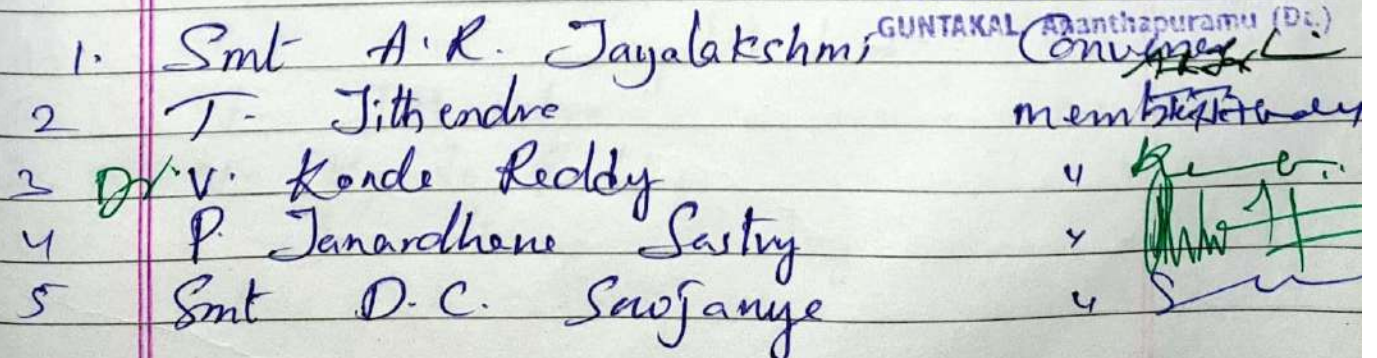 GUNTAKAL, Ananthapuramu (Dt.)
1. Smt A.R. Jayalakshmi Convener
2 T. Jithendre member
3 Dr. V. Konde Reddy "
4 P. Janardhene Sastry "
5 Smt D.C. Sarojanye "